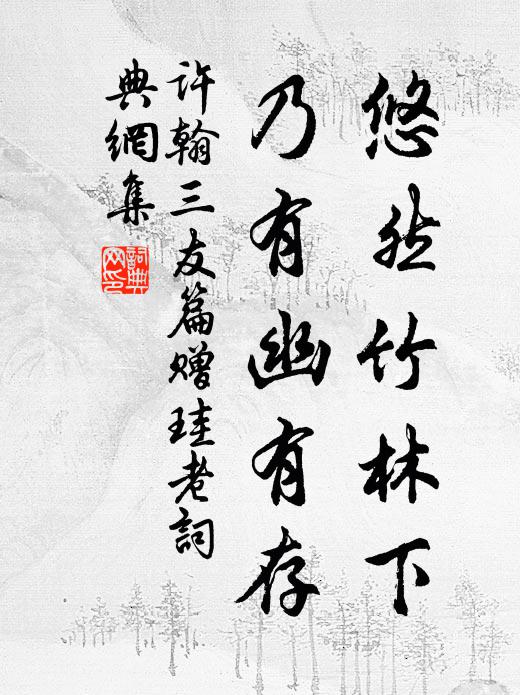 悠然竹林下
乃有幽有存
许翰三友篇赠珪老詞
典網集
詞典
网印